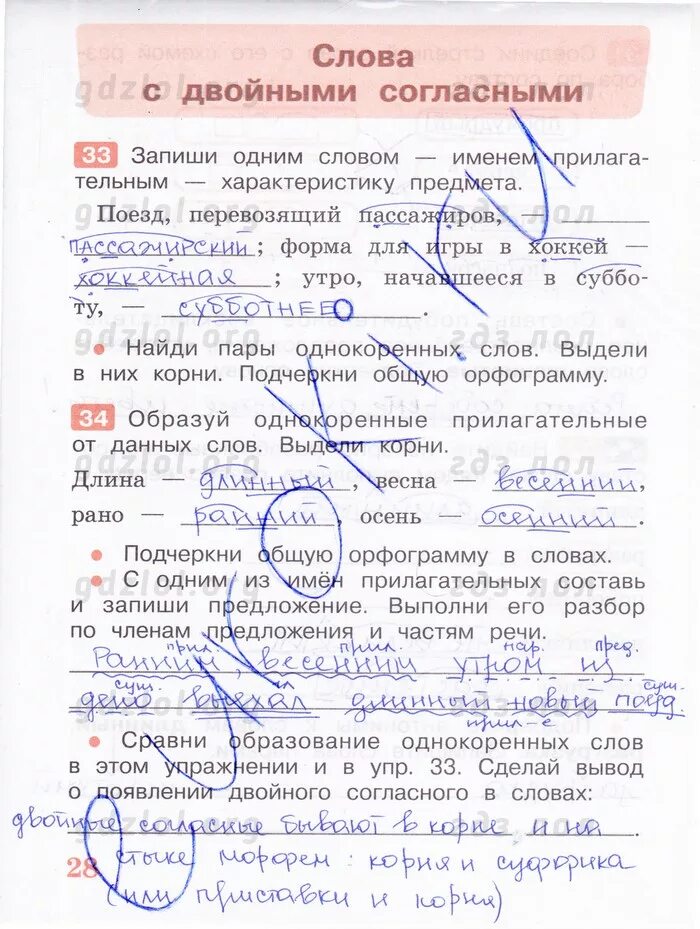 Слова
с двойными согласными
33 Запиши одним словом — именем прилага-
тельным — характеристику предмета.
Поезд, перевозящий пассажиров, —
пассажирский; форма для игры в хоккей —
хоккейная; утро, начавшееся в суббо-
ту, — субботнее.
• Найди пары однокоренных слов. Выдели
в них корни. Подчеркни общую орфограмму.
34 Образуй однокоренные прилагательные
от данных слов. Выдели корни.
Длина — длинный, весна — весенний,
рано — ранний, осень — осенний.
• Подчеркни общую орфограмму в словах.
• С одним из имён прилагательных составь
и запиши предложение. Выполни его разбор
по членам предложения и частям речи.
прил. прил. нар. пред.
Ранним, весенним утром из
сущ. гл сущ.
депо выехал длинный новый поезд.
прил-е
• Сравни образование однокоренных слов
в этом упражнении и в упр. 33. Сделай вывод
о появлении двойного согласного в словах:
двойные согласные бывают в корне и на
28 стыке морфем: корня и суффикса
(или приставки и корня)
gdzlol.org
гдз.лол